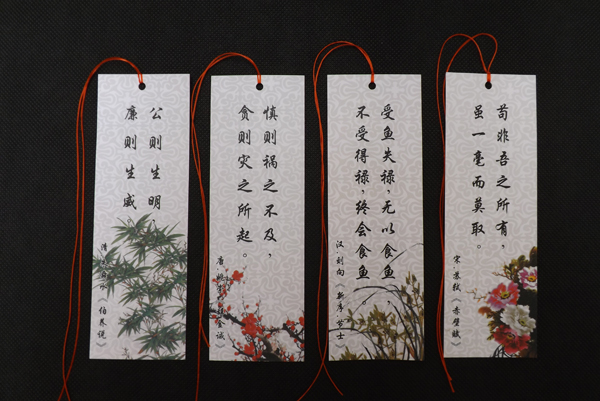 公则生明，
廉则生威。
清 水《伯养说》
慎则祸之不及，
贪则灾之所起。
唐 姚 金诫》
受鱼失禄，无以食鱼，
不受得禄，终会食鱼。
汉 刘向《新序·节士
苟非吾之所有，
虽一毫而莫取。
宋 苏轼《赤壁赋》